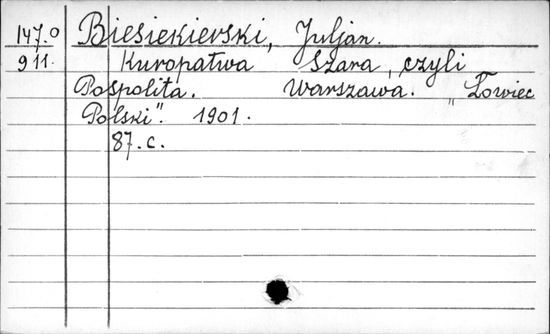 147.0 Biesiekierski, Juljan.
911. Kuropatwa szara, czyli
Pospolita. Warszawa. „Łowiec
Polski". 1901.
87. c.